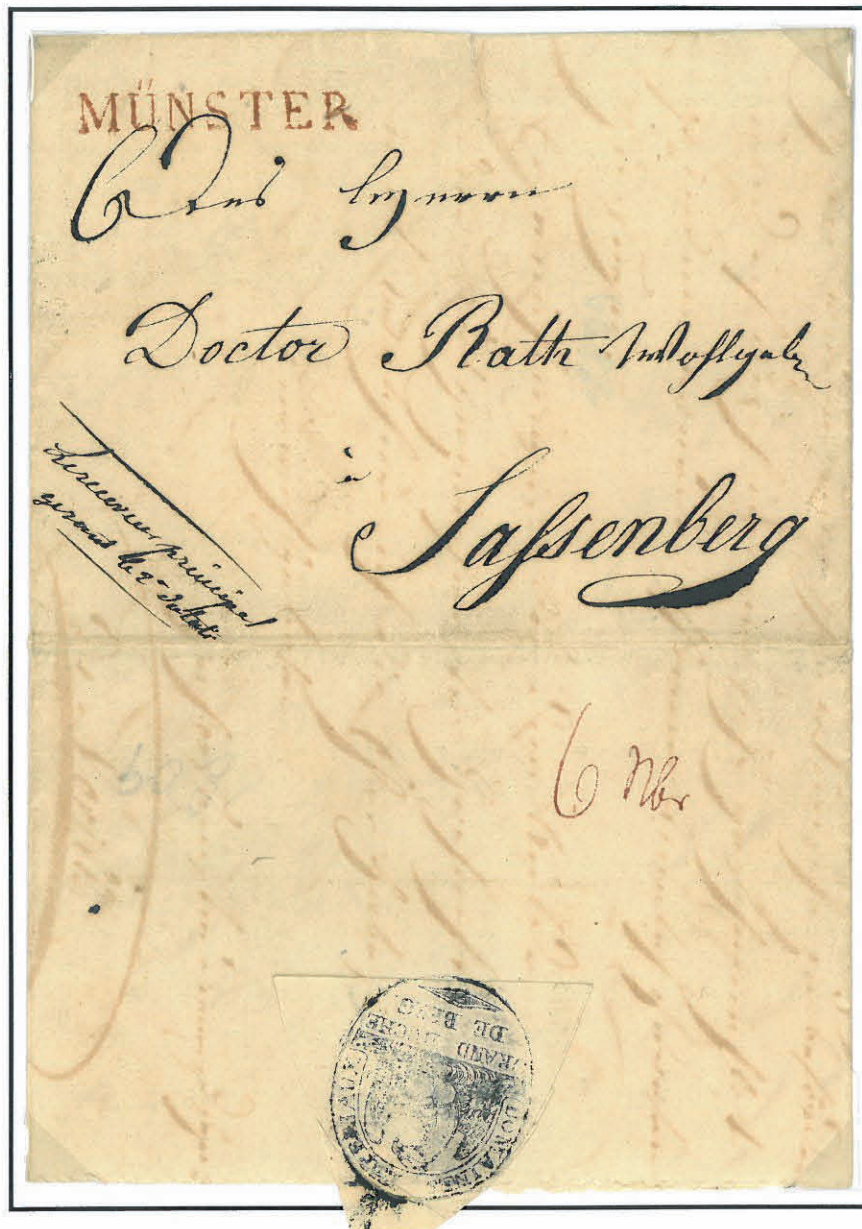 MÜNSTER
Des Herrn
Doctor Rath Wohlgeb
à
Sassenberg
principal
6 Nbr
GRAND DUCHE
DE BERG
DOMAINES